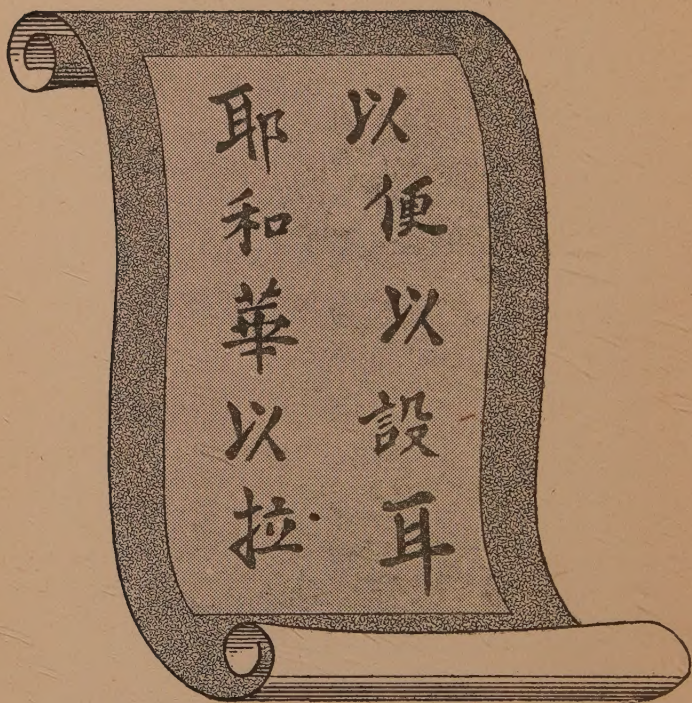 以便以設耳
耶和華以拉